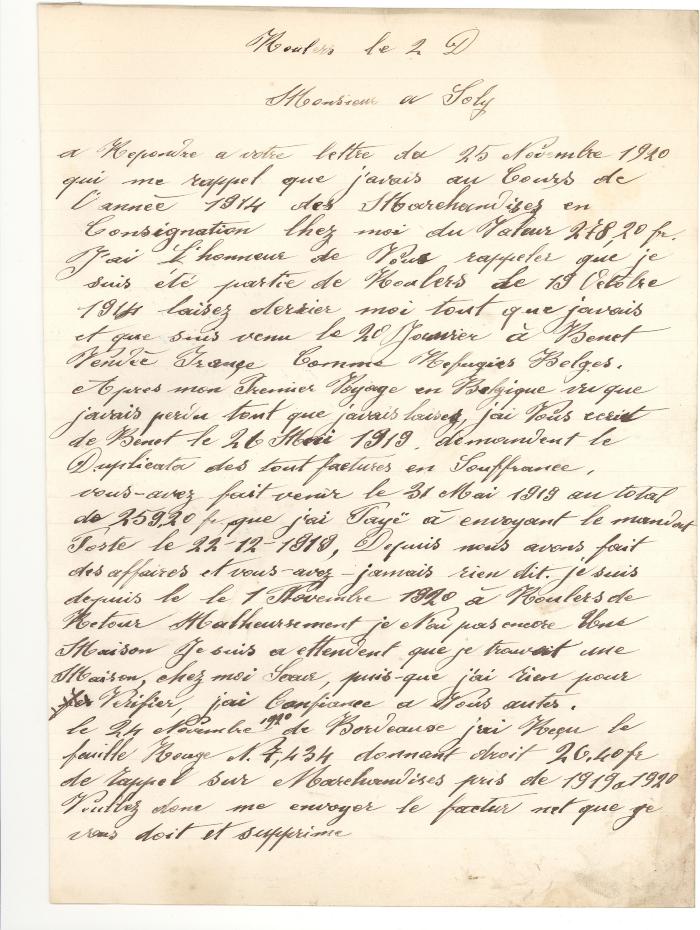 Roulers le 2 D
Monsieur a Soly
a Repondre a votre lettre du 25 Novembre 1920
qui me rappel que j'avais au Cours de
l'année 1914 des Marchandises en
Consignation Chez moi du Valeur 278,20 fr.
J'ai L'honneur de Vous rappeler que je
suis été partie de Roulers le 19 Octobre
1914 laisez derrier moi tout que j'avais
et que suis venu le 20 Janvier à Benet
Vendée France Comme Refugies Belges.
Apres mon Premier Voyage en Belgique vu que
j'avais perdu tout que j'avais laisez, j'ai Vous ecrit
de Benet le 26 Mai 1919, demandent le
Duplicata des tout factures en Souffrance,
vous-avez fait venir le 31 Mai 1919 au total
de 259,20 fr, que j'ai Payé à envoyant le mandat
Poste le 22-12-1919, Depuis nous avons fait
des affaires et vous-avez-jamais rien dit. je suis
depuis le le 1 Novembre 1920 à Roulers de
Retour Malheursement je N'ai pas encore Une
Maison Je suis a attendent que je trouvait une
Maison, chez moi Sœur, puis-que j'ai rien pour
Verifier, j'ai Confiance a Vous autes.
le 24 Novembre 1920 de Bordeaux j'ai Reçu le
feuille Rouge N. 7,434 donnant droit 26.40 fr
de rappel sur Marchandises pris de 1919 a 1920
Veuillez donc me envoyer le factur net que je
vous doit et supprime